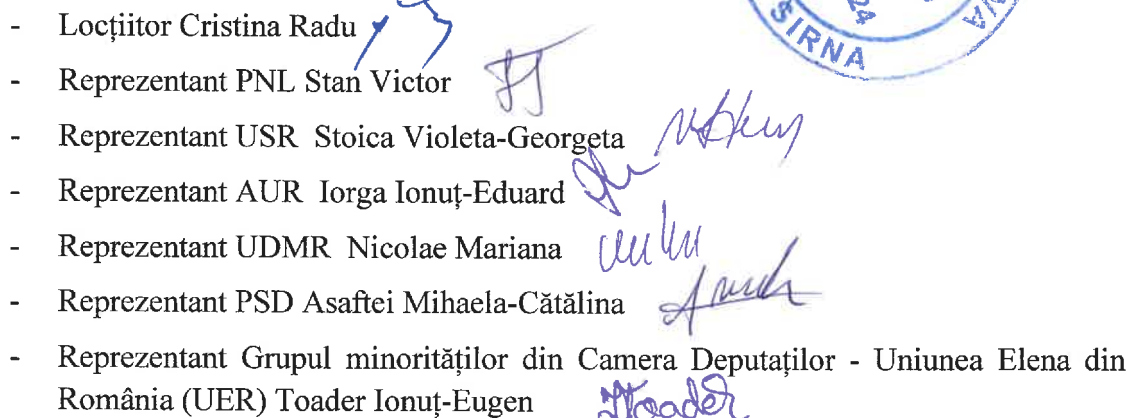 - Locțiitor Cristina Radu
24
ȘIRNA
- Reprezentant PNL Stan Victor
- Reprezentant USR Stoica Violeta-Georgeta
- Reprezentant AUR Iorga Ionuț-Eduard
- Reprezentant UDMR Nicolae Mariana
- Reprezentant PSD Asaftei Mihaela-Cătălina
- Reprezentant Grupul minorităților din Camera Deputaților - Uniunea Elena din
România (UER) Toader Ionuț-Eugen
Toader